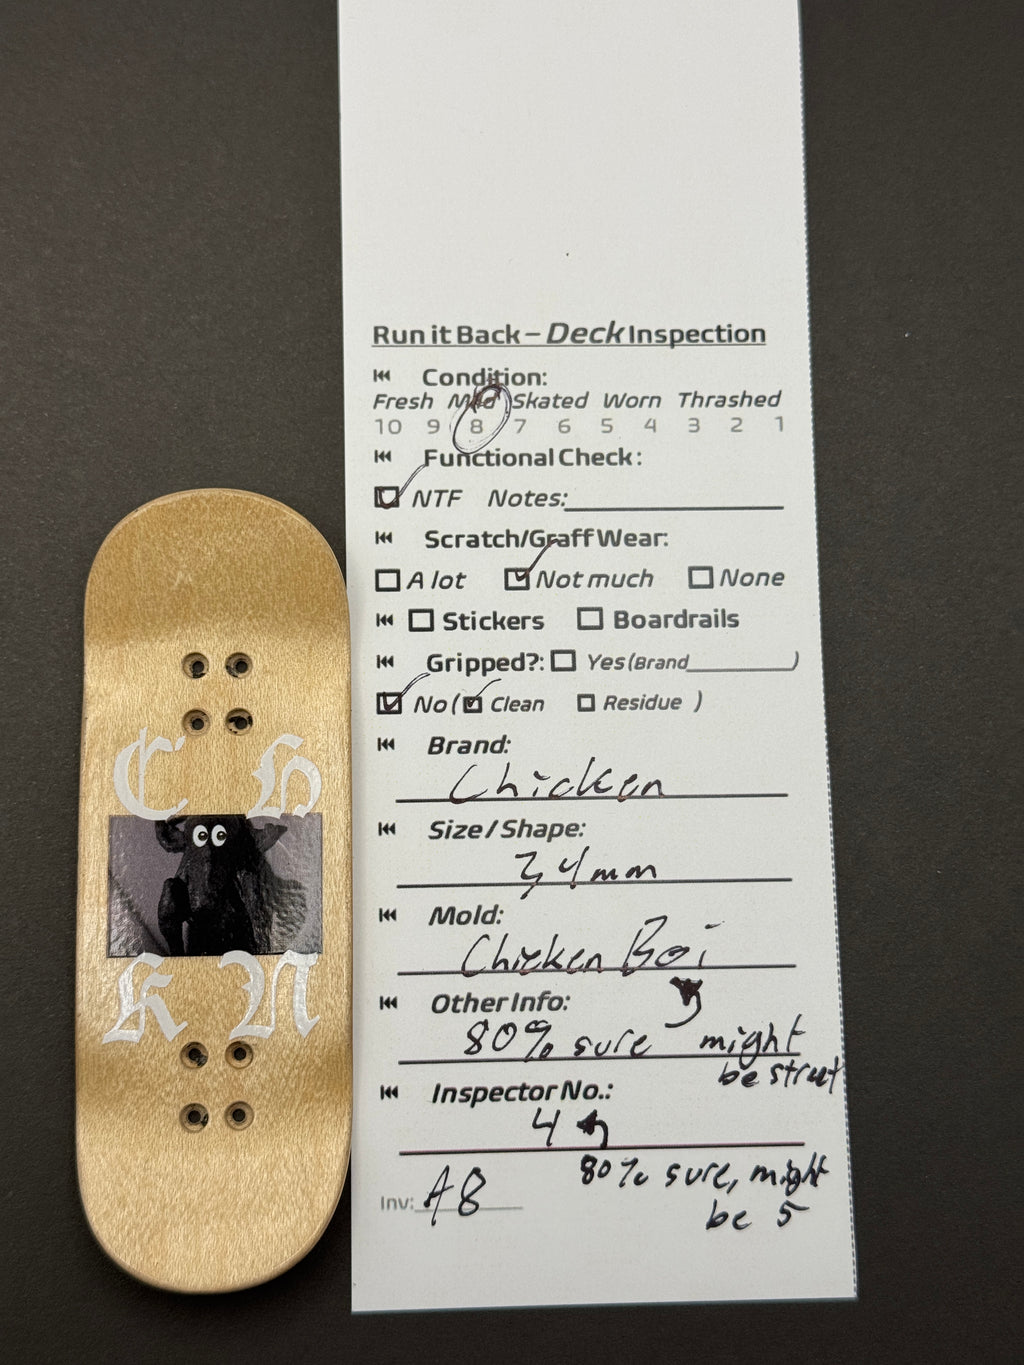 Run it Back – Deck Inspection
Condition:
Fresh Mild Skated Worn Thrashed
10 9 8 7 6 5 4 3 2 1
Functional Check:
NTF Notes:
Scratch/Graff Wear:
A lot Not much None
Stickers Boardrails
Gripped?: Yes (Brand )
No ( Clean Residue )
Brand:
Chicken
Size / Shape:
34mm
Mold:
Chicken Boi
Other Info:
80% sure might
be street
Inspector No.:
4
80% sure, might
be 5
Inv: A8
C H
K N